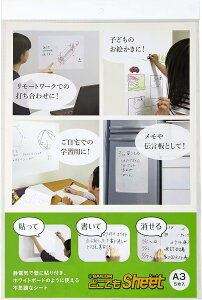 リモートワークでの
打ち合わせに！
子どもの
お絵かきに！
ご自宅での
学習用に！
メモや
伝言板として！
貼って
書いて
消せる
静電気で壁に貼り付き、
ホワイトボードのように使える
不思議なシート
どこでもSheet
A3
5枚入